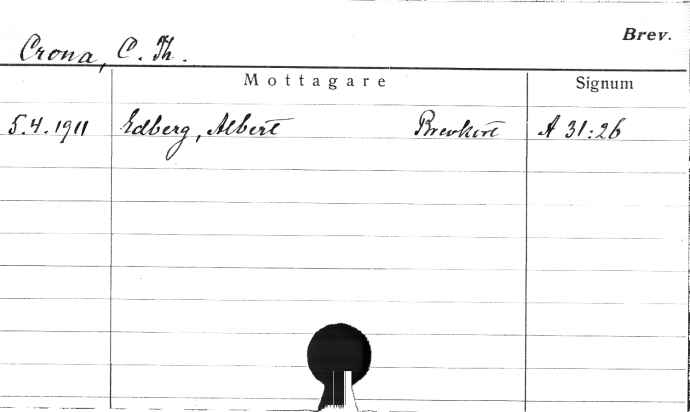 Brev.
Crona, C. Th.
Mottagare Signum
5.4.1911 Edberg, Albert Brevkort A 31:26